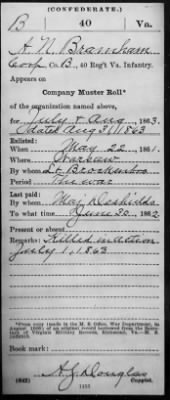 (CONFEDERATE.)
B 40 Va.
A. N. Bramham
Corp, Co. B., 40 Reg't Va. Infantry.
Appears on
Company Muster Roll*
of the organization named above,
for July & Aug, 1863.
Dated Aug 31, 1863
Enlisted:
When May 22, 1861.
Where Warsaw
By whom Lt. Brockenbro
Period The war
Last paid:
By whom Maj. Deshields
To what time June 30, 1862
Present or absent
Remarks: Killed in action
July 1, 1863
Book mark:
A. J. Douglas
(642) Copyist.